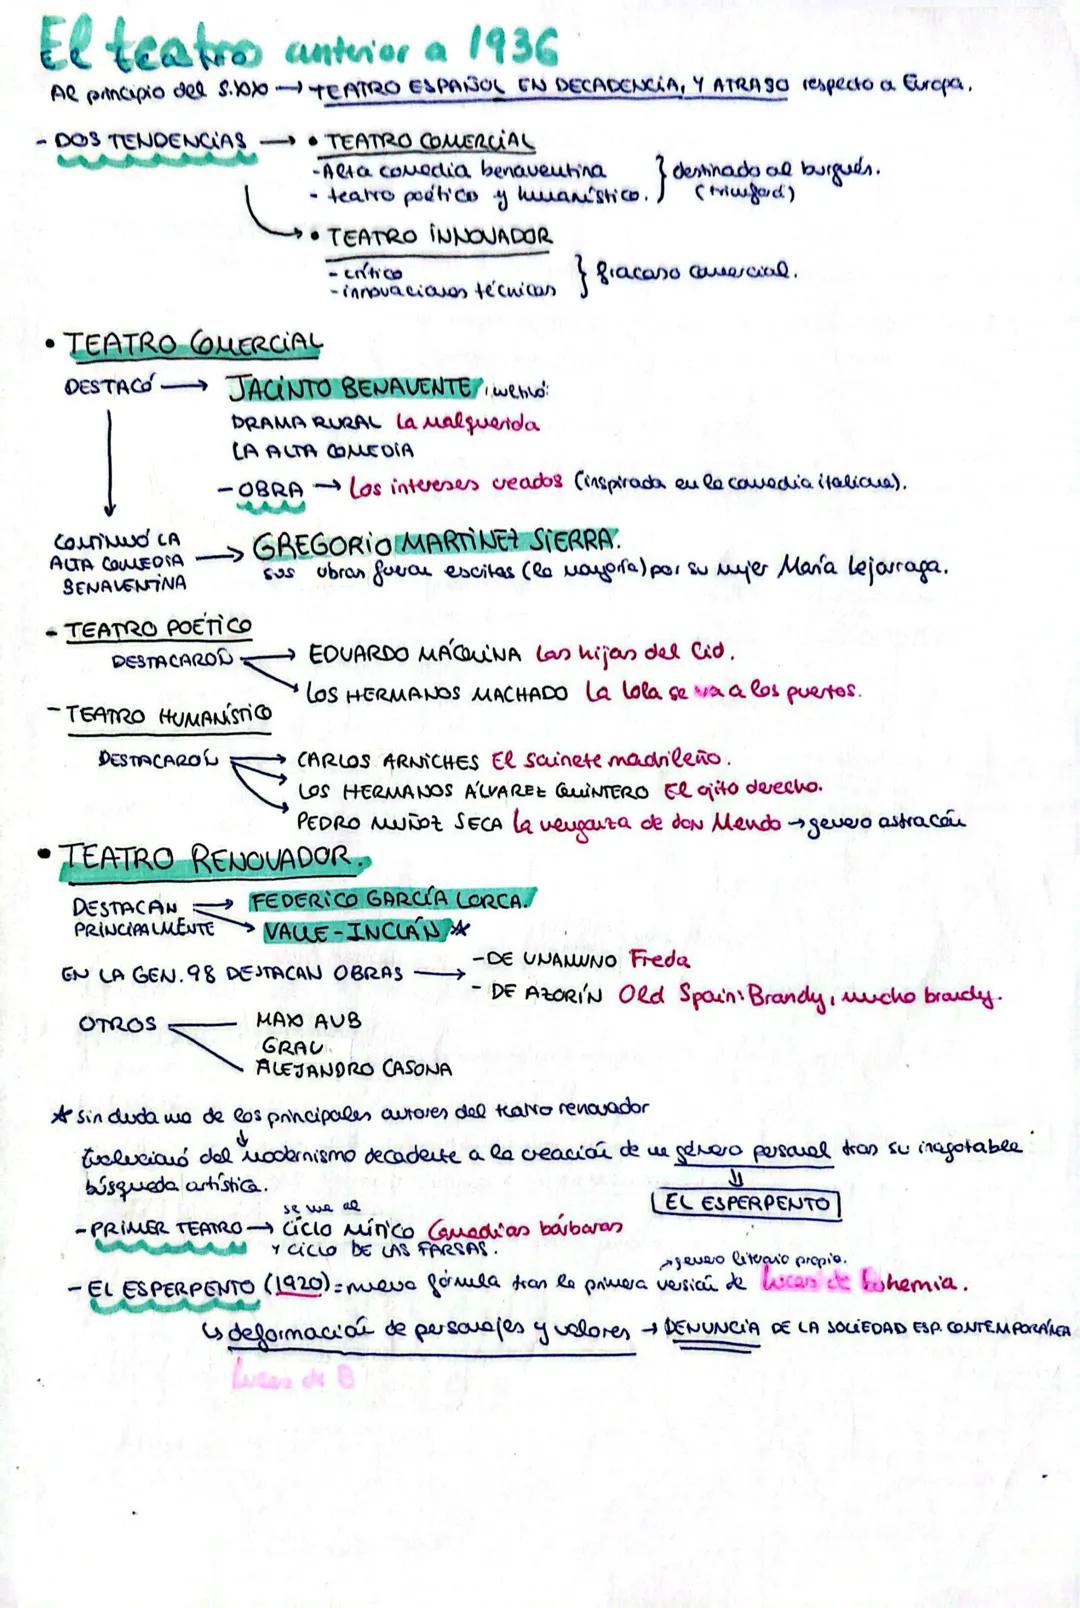 El teatro anterior a 1936
Al principio del S.XX → TEATRO ESPAÑOL EN DECADENCIA, Y ATRASO respecto a Europa.
- DOS TENDENCIAS → • TEATRO COMERCIAL
- Alta comedia benaventina
- teatro poético y humanístico. } destinado al burgués. (triunfará)
• TEATRO INNOVADOR
- crítico
- innovaciones técnicas } fracaso comercial.
• TEATRO COMERCIAL
DESTACÓ → JACINTO BENAVENTE,
DRAMA RURAL La malquerida
LA ALTA COMEDIA
- OBRA → Los intereses creados (inspirada en la comedia italiana).
CONTINUÓ LA ALTA COMEDIA BENAVENTINA → GREGORIO MARTÍNEZ SIERRA.
sus obras fueron escitas (la mayoría) por su mujer María Lejarraga.
- TEATRO POÉTICO
DESTACARON → EDUARDO MÁQUINA Las hijas del Cid.
LOS HERMANOS MACHADO La Lola se va a los puertos.
- TEATRO HUMANÍSTICO
DESTACARON → CARLOS ARNICHES El sainete madrileño.
LOS HERMANOS ÁLVAREZ QUINTERO El ojito derecho.
PEDRO MUÑOZ SECA La venganza de don Mendo → género astracán
• TEATRO RENOVADOR.
DESTACAN PRINCIPALMENTE → FEDERICO GARCÍA LORCA.
→ VALLE-INCLÁN ★
EN LA GEN.98 DESTACAN OBRAS → - DE UNAMUNO Freda
- DE AZORÍN Old Spain: Brandy, mucho brandy.
OTROS MAX AUB
GRAU
ALEJANDRO CASONA
★ Sin duda uno de los principales autores del teatro renovador
↓
Evolucionó del modernismo decadente a la creación de un género personal tras su inagotable
búsqueda artística.
⇓
EL ESPERPENTO
se une al
- PRIMER TEATRO → ciclo mítico Comedias bárbaras
Y CICLO DE LAS FARSAS.
→ género literario propio.
- EL ESPERPENTO (1920) = nueva fórmula tras la primera versión de Luces de bohemia.
↳ deformación de personajes y valores → DENUNCIA DE LA SOCIEDAD ESP. CONTEMPORÁNEA
Luces de B